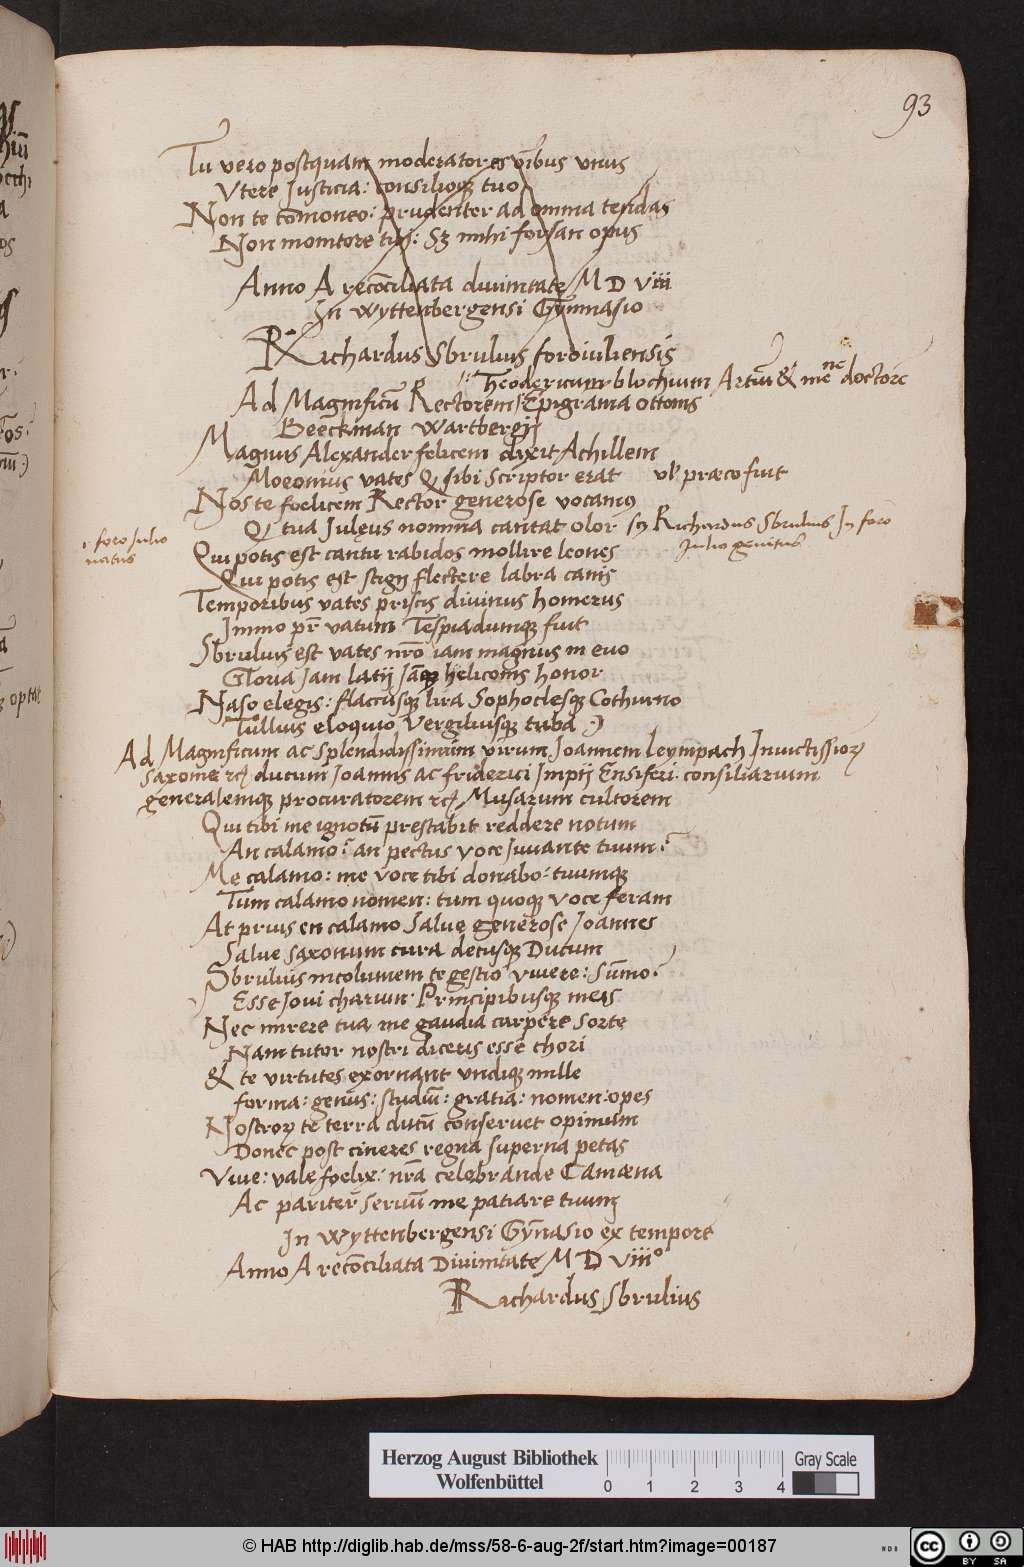 93
Tu vero postquam moderator es oībus unus
Utere Justicia: consilioq; tuo
Non te cōmoneo: prudenter ad omnia tendas
Non monitore tibi: Sz mihi forsan opus
Anno A recōciliata divinitate M D viii
In Wyttenbergensi Gymnasio
Richardus Sbrulius foroiuliensis
Theodericum blochium Artiū & mēne doctorē
Ad Magnificū Rectorem Epigrama ottonis
Beeckman Wartbergij
Magnus Alexander felicem dixit Achillem
Moeonius vates Q sibi Scriptor erat vl præco fuit
Nos te foelicem Rector generose vocamus
Q tua Julęus nomina cantat olor scz Richardus Sbrulius In foro
Julio genitus
foro Julio
natus
Qui potis est cantu rabidos mollire leones
Qui potis est stigij flectere labra canis
Temporibus vates priscis divinus homerus
Immo pr̄ vatum Tespiadumq; fuit
Sbrulius est vates nrō iam magnus in evo
Gloria Jam latij Jāq; helicōnis honor
Naso elegis: flaccusq; lira Sophoclesq; Cothurno
Tullius eloquio Vergiliusq; tuba
Ad Magnificum ac splendidissimum virum Joannem Leympach Invictissior
Saxonię rc ducum Joannis ac friderici Impij Ensiferi consiliarium
generalemq; procuratorem rc Musarum cultorem
Qui tibi me ignotū prestabit reddere notum
An calamo? an pectus voce Juvante tuum?
Me calamo: me voce tibi donabo: tuumq;
Tum calamo nomen: tum quoq; voce feram
At prius en calamo Salve generose Joannes
Salve Saxonum cura decusq; Ducum
Sbrulius incolumem te gestio vivere: Sūmo?
Esse Jovi charum Principibusq; meis
Nec mirere tua me gaudia carpere Sorte
Nam tutor nostri diceris esse chori
& te virtutes exornant undiq; mille
forma: genus: studiū: gratia: nomen: opes
Nostror te terra ducū conservet opimum
Donec post cineres regna superna petas
Vive: vale foelix: nrā celebrande Camæna
Ac pariter Servū me patiare tuum
In Wyttenbergensi Gȳnasio ex tempore
Anno A recōciliata Divinitate M D viii°
Richardus Sbrulius
Herzog August Bibliothek
Wolfenbüttel
0 1 2 3 4
Gray Scale
© HAB http://diglib.hab.de/mss/58-6-aug-2f/start.htm?image=00187
cc BY SA